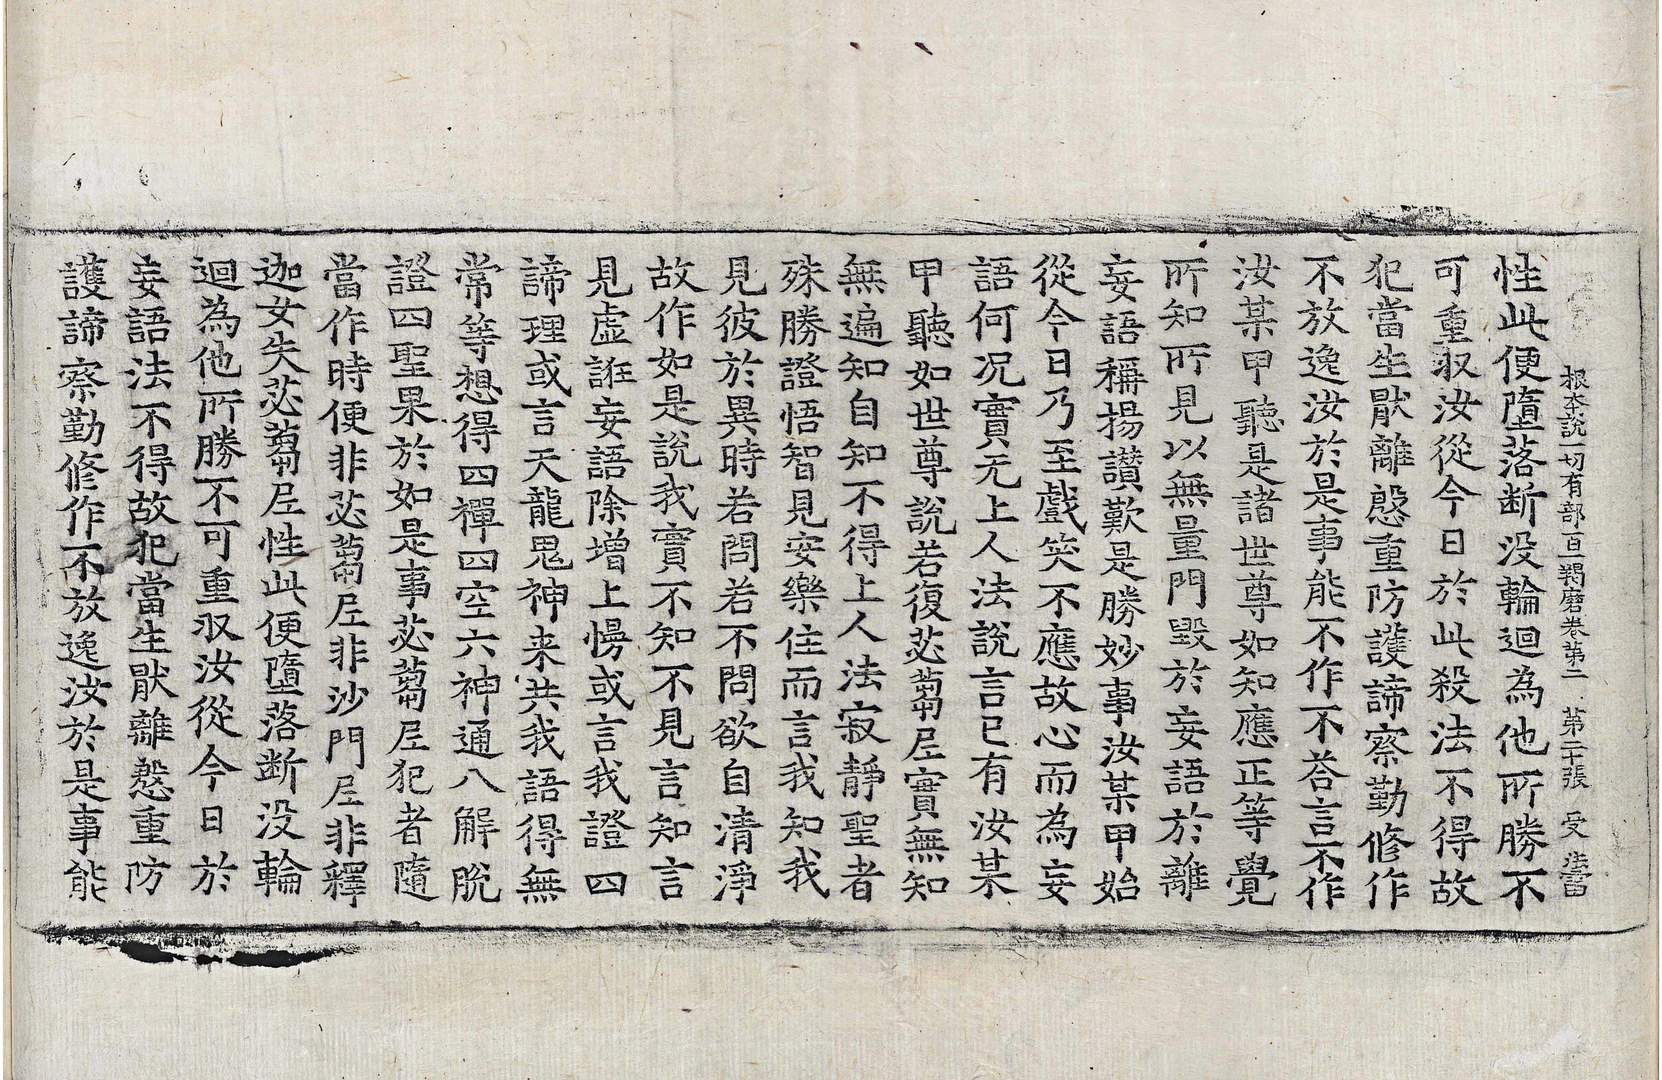 根本說一切有部百一羯磨卷第二　第二十張　受
性此便墮落断没輪迴為他所勝不
可重収汝從今日於此殺法不得故
犯當生猒離慇重防護諦察勤修作
不放逸汝於是事能不作不荅言不作
汝某甲聽是諸世尊如知應正等覺
所知所見以無量門毀於妄語於離
妄語稱揚讃歎是勝妙事汝某甲始
從今日乃至戲笑不應故心而為妄
語何況實无上人法說言已有汝某
甲聽如世尊說若復苾蒭尼實無知
無遍知自知不得上人法寂靜聖者
殊勝證悟智見安樂住而言我知我
見彼於異時若問若不問欲自清淨
故作如是說我實不知不見言知言
見虛誑妄語除增上慢或言我證四
諦理或言天龍鬼神来共我語得無
常等想得四禪四空六神通八解脫
證四聖果於如是事苾蒭尼犯者隨
當作時便非苾蒭尼非沙門尼非釋
迦女失苾蒭尼性此便墮落断没輪
迴為他所勝不可重収汝從今日於
妄語法不得故犯當生猒離慇重防
護諦察勤修作不放逸汝於是事能